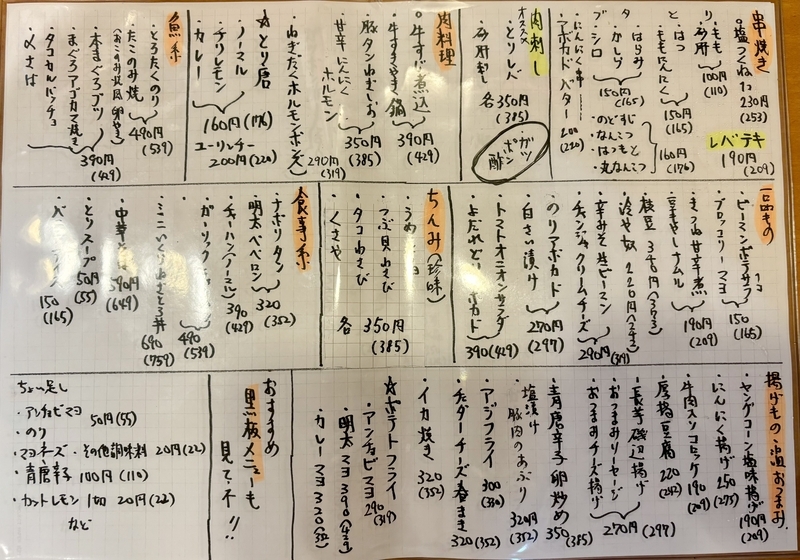 串焼き
・塩つくね 230円(253)
レバテキ 190円(209)
・もも
・砂肝
100円(110)
・はつ
・ももにんにく
150円(165)
・はらみ
・かしら
150円(165)
・のどすじ
・なんこつ
・はつもと
・丸なんこつ
160円(176)
・にんにく串
アボカドバター
肉刺し
オススメ
・とりレバ
・砂肝刺し
各350円(385)
ガツポン酢
肉料理
・牛すじ煮込
・牛すきやき鍋
390円(429)
・豚タンねぎしお
350円(385)
・甘辛にんにくホルモン
290円(319)
・ねぎだくホルモンポンズ
☆とり唐
・ノーマル
・チリレモン
・カレー
160円(176)
ユーリンチー
200円(220)
魚系
・とろたくのり
・たこのみ焼
(おこのみ焼風 卵やき)
490円(539)
・本まぐろブツ
・まぐろアゴカマ焼き
・タコカルパッチョ
・〆さば
390円(429)
一品もの
・ピーマンポテサラ
・ブロッコリーマヨ
150(165)
・きつね甘辛煮
・豆もやしナムル
190円(209)
・枝豆 340円(373)
・冷や奴 220円(242)
・辛みそ生ピーマン
・チャンジャクリームチーズ
290円(319)
・のりアボカド
・白さい漬け
270円(297)
・トマトオニオンサラダ
・よだれどりアボカド
390(429)
ちんみ(珍味)
・つぶ貝わさび
・タコわさび
・くさや
各350円(385)
食事系
・ナポリタン
・明太ペペロン
320(352)
・チャーハン(ノーマル)
390(429)
490(539)
・ミニいくらねぎとろ丼
690(759)
590円(649)
・とりスープ 50円(55)
150(165)
揚げもの・温おつまみ
・ヤングコーン塩味揚げ 190円(209)
・にんにく揚げ 250(275)
・牛肉入りコロッケ 190(209)
・厚揚豆腐 220(242)
・長芋磯辺揚げ
・おつまみソーセージ
・おつまみチーズ揚げ
270円(297)
・青唐辛子卵炒め 350(385)
・塩漬け豚肉のあぶり 320円(352)
・アジフライ 300(330)
・チェダーチーズ春まき 320(352)
・イカ焼き 320(352)
☆ポテトフライ
・アンチョビマヨ 290(319)
・明太マヨ 390(429)
・カレーマヨ 320(352)
おすすめ
黒板メニューも
見て下り!!
ちょい足し
・アンチョビマヨ
・のり
50円(55)
・マヨネーズ・その他調味料 20円(22)
・青唐辛子 100円(110)
・カットレモン 1切 20円(22)
など